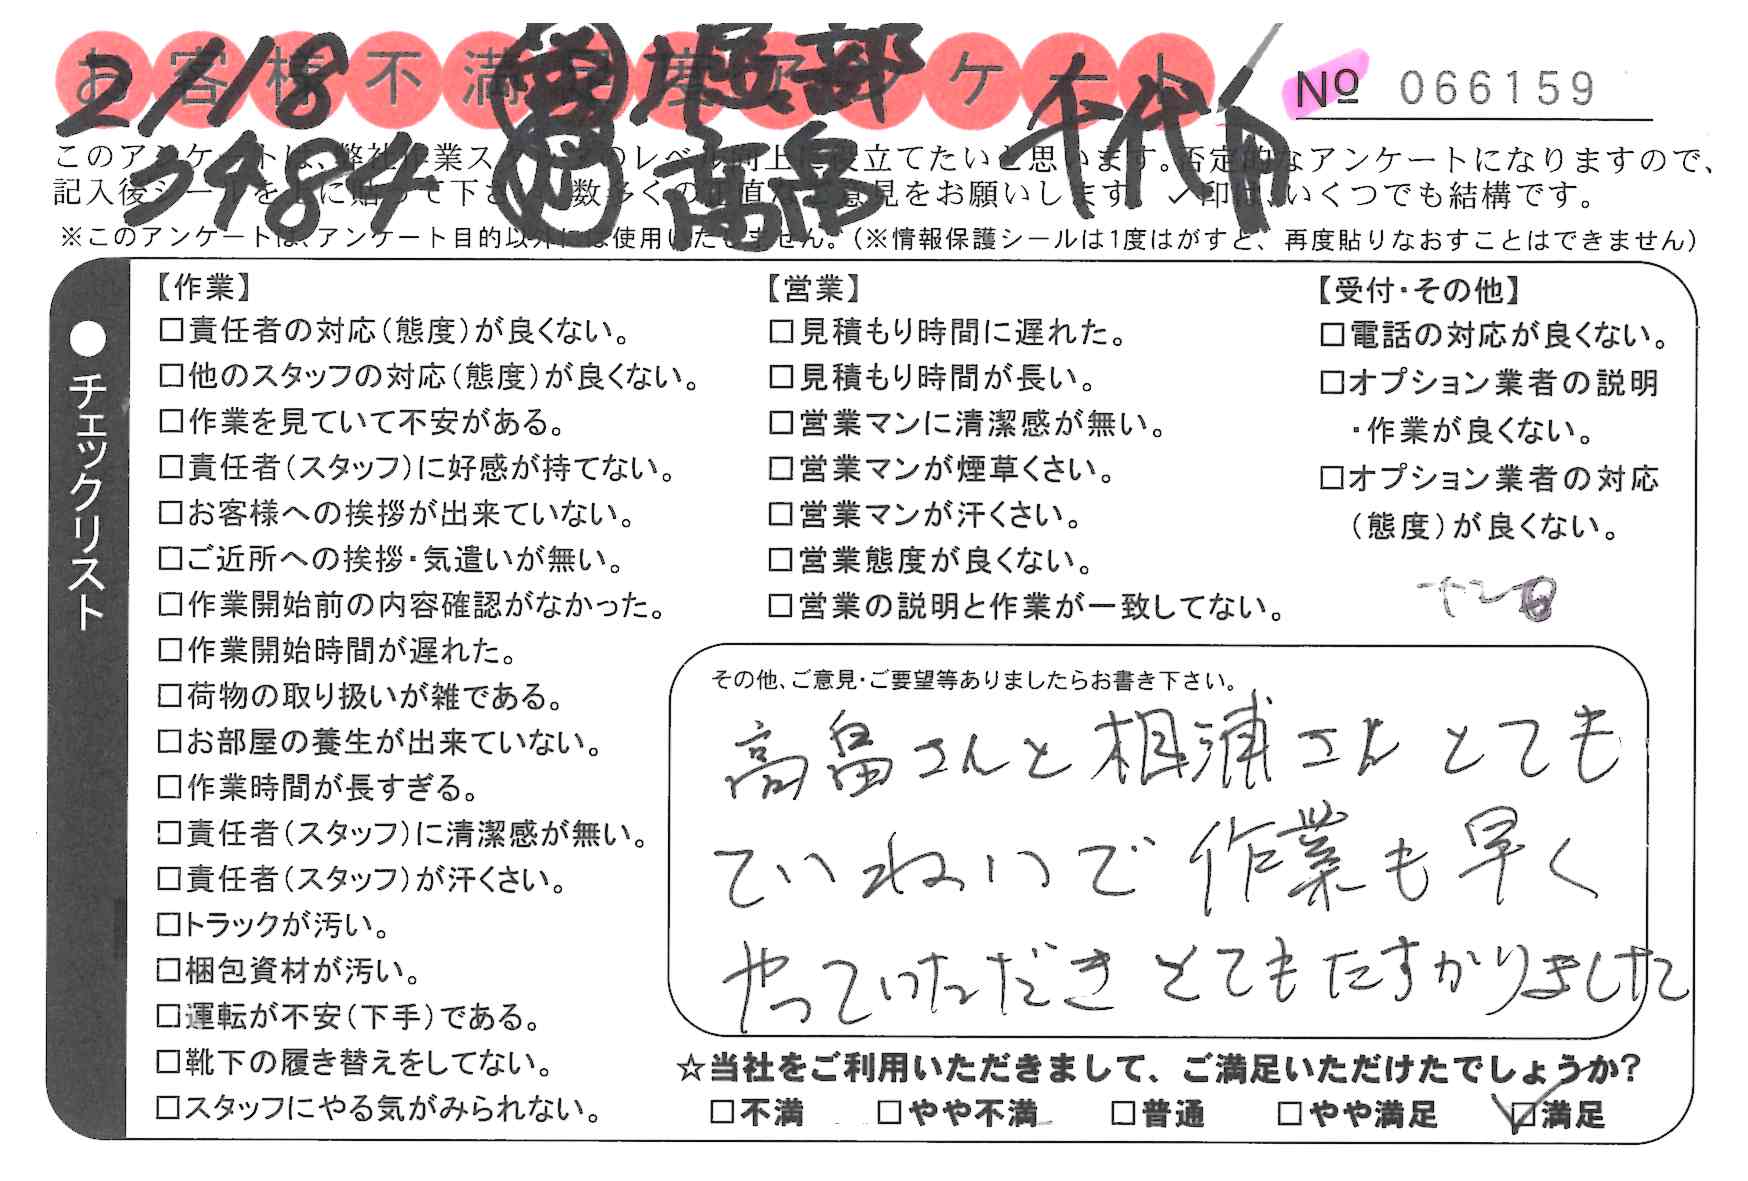 お客様不満足度アンケート
2/18 営 服部 千代田
3484 作 高畠
No 066159
このアンケートは、弊社作業スタッフのレベル向上に役立てたいと思います。否定的なアンケートになりますので、
記入後シールを上に貼って下さい。数多くの正直なご意見をお願いします。✓印は、いくつでも結構です。
※このアンケートは、アンケート目的以外には使用いたしません。（※情報保護シールは1度はがすと、再度貼りなおすことはできません）
●チェックリスト
【作業】
□責任者の対応（態度）が良くない。
□他のスタッフの対応（態度）が良くない。
□作業を見ていて不安がある。
□責任者（スタッフ）に好感が持てない。
□お客様への挨拶が出来ていない。
□ご近所への挨拶・気遣いが無い。
□作業開始前の内容確認がなかった。
□作業開始時間が遅れた。
□荷物の取り扱いが雑である。
□お部屋の養生が出来ていない。
□作業時間が長すぎる。
□責任者（スタッフ）に清潔感が無い。
□責任者（スタッフ）が汗くさい。
□トラックが汚い。
□梱包資材が汚い。
□運転が不安（下手）である。
□靴下の履き替えをしてない。
□スタッフにやる気がみられない。
【営業】
□見積もり時間に遅れた。
□見積もり時間が長い。
□営業マンに清潔感が無い。
□営業マンが煙草くさい。
□営業マンが汗くさい。
□営業態度が良くない。
□営業の説明と作業が一致してない。
【受付・その他】
□電話の対応が良くない。
□オプション業者の説明
・作業が良くない。
□オプション業者の対応
（態度）が良くない。
その他、ご意見・ご要望等ありましたらお書き下さい。
高畠さんと相浦さんとても
ていねいで作業も早く
やっていただきとてもたすかりました
☆当社をご利用いただきまして、ご満足いただけたでしょうか？
□不満 □やや不満 □普通 □やや満足 ☑満足